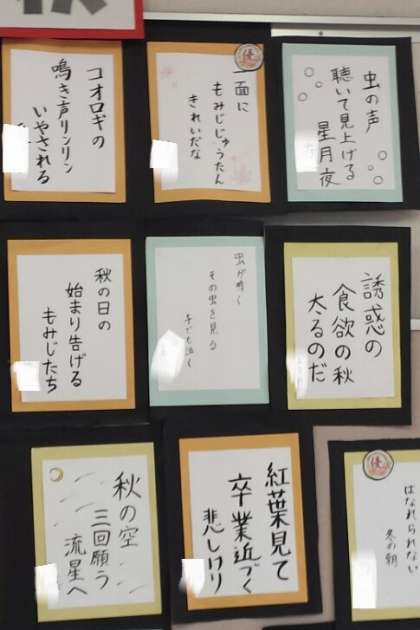 コオロギの
鳴き声リンリン
いやされる
優
一面に
もみじじゅうたん
きれいだな
虫の声
聴いて見上げる
星月夜
秋の日の
始まり告げる
もみじたち
虫が鳴く
その虫を見る
子ども泣く
誘惑の
食欲の秋
太るのだ
秋の空
三回願う
流星へ
紅葉見て
卒業近づく
悲しけり
優
はなれられない
冬の朝